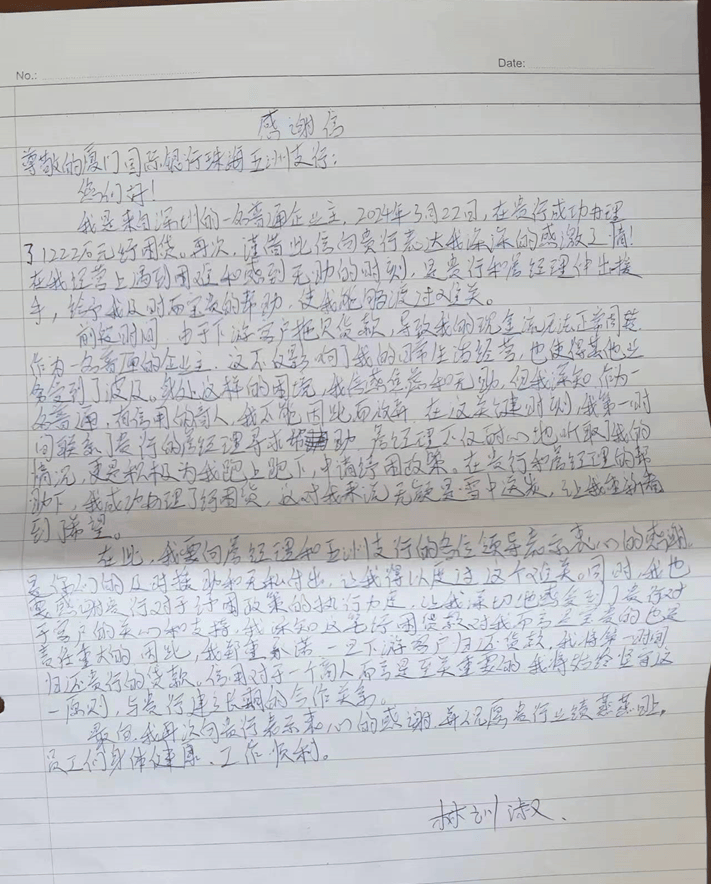 No.:
Date:
感谢信
尊敬的厦门国际银行珠海亚洲支行：
您们好！
我是来自深圳的一名普通企业主，2024年3月22日，在贵行成功办理
了1222万元纾困贷。再次，谨借此信向贵行表达我深深的感激之情！
在我经营上遇到困难和感到无助的时刻，是贵行和居经理伸出援
手，给予我及时而宝贵的帮助，使我能够渡过难关。
前段时间，由于下游客户拖欠货款，导致我的现金流无法正常周转
作为一名普通的企业主，这不仅影响了我的日常生活经营，也使得其他业
务受到了波及。身处这样的困境，我倍感焦虑和无助，但我深知，作为一
名普通，有信用的商人，我不能因此而放弃 在这关键时刻，我第一时
间联系了贵行的居经理寻求帮助 居经理不仅耐心地听取了我的
情况，更是积极为我跑上跑下，申请纾困政策。在贵行和居经理的帮
助下，我成功办理了纾困贷，这对我来说无疑是雪中送炭，让我重新看
到了希望。
在此，我要向居经理和亚洲支行的各位领导表示衷心的感谢。
是你们的及时援助和无私付出，让我得以度过这个难关。同时，我也
要感谢贵行对于纾困政策的执行力度，让我深切地感受到了贵行对
于客户的关心和支持，我深知这笔纾困贷款对我而言是宝贵的也是
责任重大的，因此，我郑重承诺一旦下游客户归还货款，我将第一时间
归还贵行的贷款，信用对于一个商人而言是至关重要的 我将始终坚守这
一原则，与贵行建立长期的合作关系。
最后，我再次向贵行表示衷心的感谢，并祝愿贵行业绩蒸蒸日上，
员工们身体健康、工作顺利。
林训淑